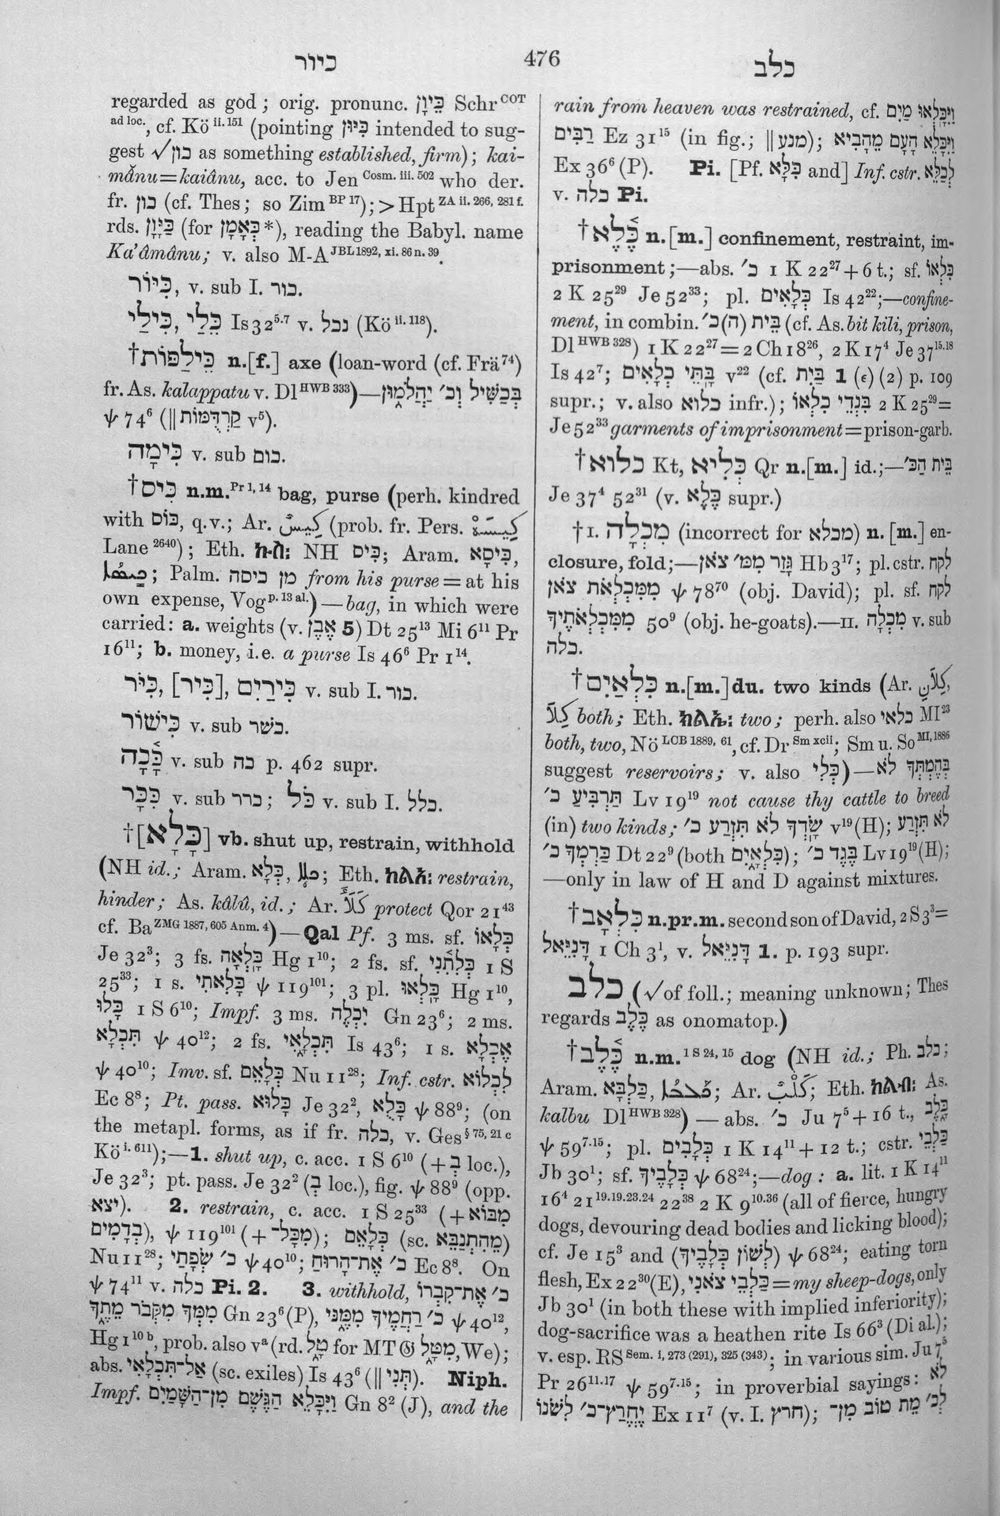 כיור
476
כלב
regarded as god; orig. pronunc. כֵּיוָן Schr COT
ad loc., cf. Kö ii. 151 (pointing כִּיּוּן intended to sug-
gest √כון as something established, firm); kai-
mânu=kaiânu, acc. to Jen Cosm. iii. 502 who der.
fr. כון (cf. Thes; so Zim BP 17); > Hpt ZA ii. 266, 281 f.
rds. (for *), reading the Babyl. name
Ka'âmânu; v. also M-A JBL 1892, xi. 86 n. 39.
כִּיּוֹר, v. sub I. כור.
כֵּילַי, כִּילַי Is 32 5.7 v. נכל (Kö ii. 118).
†כֵּילַפּוֹת n.[f.] axe (loan-word (cf. Frä 74)
fr. As. kalappatu v. Dl HWB 333)—בְּכַשִּׁיל וְכ׳ יַהֲלֹמוּן
ψ 74 6 (‖ קַרְדֻּמּוֹת v 5).
כִּימָה v. sub כום.
†כִּיס n.m. Pr 1, 14 bag, purse (perh. kindred
with כוס, q.v.; Ar. كِيسٌ (prob. fr. Pers. كيسه
Lane 2640); Eth. ኪስ: NH כִּיס; Aram. כִּיסָא,
ܟܝܣܐ; Palm. מן כיסה from his purse = at his
own expense, Vog p. 13 al.)—bag, in which were
carried: a. weights (v. אֶבֶן 5) Dt 25 13 Mi 6 11 Pr
16 11; b. money, i.e. a purse Is 46 6 Pr 1 14.
כִּיר, [כִּיר], כִּירַיִם v. sub I. כור.
כִּישׁוֹר v. sub כשר.
כָּכָה v. sub כה p. 462 supr.
כִּכָּר v. sub כרר; כֹּל v. sub I. כלל.
†[כָּלָא] vb. shut up, restrain, withhold
(NH id.; Aram. כְּלָא, ܟܠܐ; Eth. ከልአ: restrain,
hinder; As. kâlû, id.; Ar. كَلَأَ protect Qor 21 43
cf. Ba ZMG 1887, 605 Anm. 4)—Qal Pf. 3 ms. sf. כְּלָאוֹ
Je 32 3; 3 fs. כָּלְאָה Hg 1 10; 2 fs. sf. כְּלִתִנִי 1 S
25 33; 1 s. כָּלִאתִי ψ 119 101; 3 pl. כָּלְאוּ Hg 1 10,
כָּלוּ 1 S 6 10; Impf. 3 ms. יִכְלֶה Gn 23 6; 2 ms.
תִּכְלָא ψ 40 12; 2 fs. תִּכְלָאִי Is 43 6; 1 s. אֶכְלָא
ψ 40 10; Imv. sf. כְּלָאֵם Nu 11 28; Inf. cstr. לִכְלוֹא
Ec 8 8; Pt. pass. כָּלוּא Je 32 2, כָּלֻא ψ 88 9; (on
the metapl. forms, as if fr. כלה, v. Ges § 75, 21 c
Kö i. 611);—1. shut up, c. acc. 1 S 6 10 (+ בְּ loc.),
Je 32 3; pt. pass. Je 32 2 (בְּ loc.), fig. ψ 88 9 (opp.
יצא). 2. restrain, c. acc. 1 S 25 33 (+ מִבּוֹא
בְדָמִים), ψ 119 101 (+ מִכָּל־); כְּלָאֵם (sc. מֵהִתְנַבֵּא)
Nu 11 28; כ׳ שְׂפָתַי ψ 40 10; כ׳ אֶת־הָרוּחַ Ec 8 8. On
ψ 74 11 v. כלה Pi. 2. 3. withhold, כ׳ אֶת־קִבְרוֹ
מִמְּךָ מִקְּבֹר מֵתֶךָ Gn 23 6 (P), כ׳ רַחֲמֶיךָ מִמֶּנִּי ψ 40 12,
Hg 1 10 b, prob. also v a (rd. טַל for MT 𝔊 מִטָּל, We);
abs. אַל־תִּכְלָאִי (sc. exiles) Is 43 6 (‖ תְּנִי). Niph.
Impf. וַיִּכָּלֵא הַגֶּשֶׁם מִן־הַשָּׁמָיִם Gn 8 2 (J), and the
rain from heaven was restrained, cf. וַיִּכָּלְאוּ מַיִם
רַבִּים Ez 31 15 (in fig.; ‖ מנע); וַיִּכָּלֵא הָעָם מֵהָבִיא
Ex 36 6 (P). Pi. [Pf. כִּלָּא and] Inf. cstr. לְכַלֵּא
v. כלה Pi.
†כֶּלֶא n. [m.] confinement, restraint, im-
prisonment;—abs. כ׳ 1 K 22 27 + 6 t.; sf. כִּלְאוֹ
2 K 25 29 Je 52 33; pl. כְּלָאִים Is 42 22;—confine-
ment, in combin. בֵּית (הַ)כ׳ (cf. As. bit kili, prison,
Dl HWB 328) 1 K 22 27 = 2 Ch 18 26, 2 K 17 4 Je 37 15.18
Is 42 7; בָּתֵּי כְלָאִים v 22 (cf. בַּיִת 1 (ε) (2) p. 109
supr.; v. also כלוא infr.); בִּגְדֵי כִלְאוֹ 2 K 25 29 =
Je 52 33 garments of imprisonment = prison-garb.
†כלוא Kt, כְּלִיא Qr n.[m.] id.;—בֵּית הַכּ׳
Je 37 4 52 31 (v. כֶּלֶא supr.)
†I. מִכְלָה (incorrect for מכלא) n. [m.] en-
closure, fold;—גָּזַר מִמּ׳ צֹאן Hb 3 17; pl. cstr. לקח
מִמִּכְלְאֹת צֹאן ψ 78 70 (obj. David); pl. sf. לקח
מִמִּכְלְאֹתֶיךָ 50 9 (obj. he-goats).—II. מִכְלָה v. sub
כלה.
†כִּלְאַיִם n.[m.] du. two kinds (Ar. كِلَانِ,
كِلَا both; Eth. ክልኤ: two; perh. also כלאי MI 23
both, two, Nö LCB 1889, 61, cf. Dr Sm xcii; Sm u. So MI, 1886
suggest reservoirs; v. also כְּלִי)—בְּהֶמְתְּךָ לֹא
תַרְבִּיעַ כ׳ Lv 19 19 not cause thy cattle to breed
(in) two kinds; שָׂדְךָ לֹא תִזְרַע כ׳ v 19 (H); לֹא תִזְרַע
כַּרְמְךָ כ׳ Dt 22 9 (both כִּלְאָיִם); בֶּגֶד כ׳ Lv 19 19 (H);
—only in law of H and D against mixtures.
†כִּלְאָב n.pr.m. second son of David, 2 S 3 3 =
דָּנִיֵּאל 1 Ch 3 1, v. דָּנִיֵּאל 1. p. 193 supr.
כלב (√ of foll.; meaning unknown; Thes
regards כֶּלֶב as onomatop.)
†כֶּלֶב n.m. 1 S 24, 15 dog (NH id.; Ph. כלב;
Aram. כַּלְבָּא, ܟܠܒܐ; Ar. كَلْبٌ; Eth. ከልብ: As.
kalbu Dl HWB 328)—abs. כ׳ Ju 7 5 + 16 t., כָּלֶב
ψ 59 7.15; pl. כְּלָבִים 1 K 14 11 + 12 t.; cstr. כַּלְבֵי
Jb 30 1; sf. כְּלָבֶיךָ ψ 68 24;—dog: a. lit. 1 K 14 11
16 4 21 19.19.23.24 22 38 2 K 9 10.36 (all of fierce, hungry
dogs, devouring dead bodies and licking blood);
cf. Je 15 3 and (לְשׁוֹן כְּלָבֶיךָ) ψ 68 24; eating torn
flesh, Ex 22 30 (E), כַּלְבֵי צֹאנִי = my sheep-dogs, only
Jb 30 1 (in both these with implied inferiority);
dog-sacrifice was a heathen rite Is 66 3 (Di al.);
v. esp. RS Sem. i, 273 (291), 325 (343). in various sim. Ju 7 5
Pr 26 11.17 ψ 59 7.15; in proverbial sayings: לֹא
יֶחֱרַץ־כ׳ לְשֹׁנוֹ Ex 11 7 (v. I. חרץ); לְכ׳ מֵת טוֹב מִן־